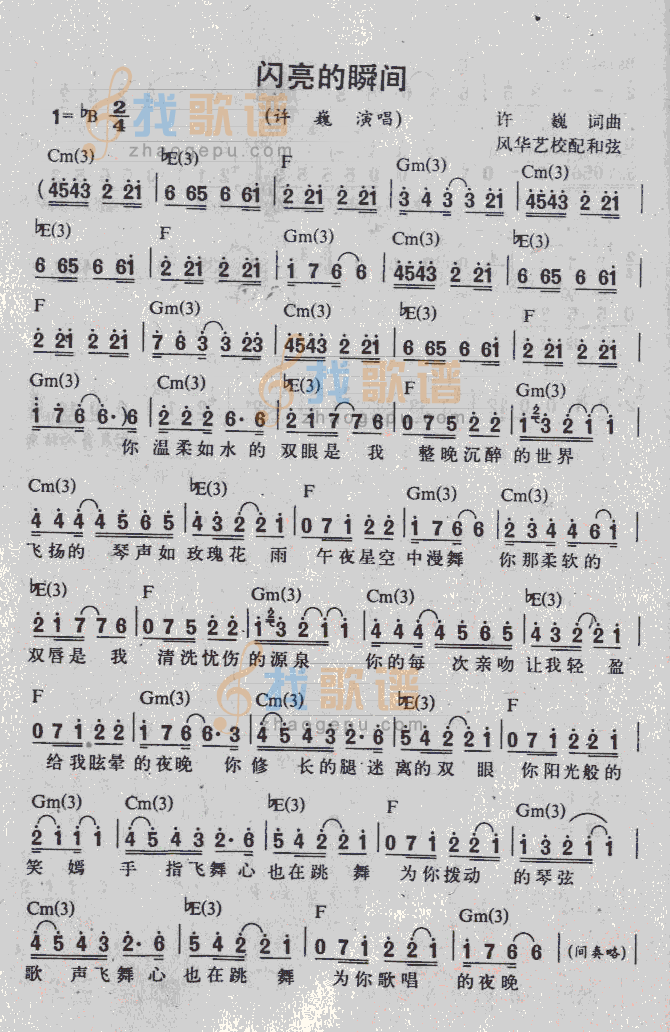 闪亮的瞬间
1=♭B 2/4 (许 巍 演唱) 许 巍 词曲
风华艺校配和弦
找歌谱
zhaogepu.com
Cm(3) ♭E(3) F Gm(3) Cm(3)
(4543 2 21 | 6 65 6 61 | 2 21 2 21 | 3 4 3 3 21 | 4543 2 21 |
♭E(3) F Gm(3) Cm(3) ♭E(3)
6 65 6 61 | 2 21 2 21 | 1 7 6 6 | 4543 2 21 | 6 65 6 61 |
F Gm(3) Cm(3) ♭E(3) F
2 21 2 21 | 7 6 3 3 23 | 4543 2 21 | 6 65 6 61 | 2 21 2 21 |
Gm(3) Cm(3) ♭E(3) F Gm(3)
1 7 6 6·)6 | 2 2 2 6·6 | 2 1 7 7 6 | 0 7 5 2 2 | 1 3 2 1 1 |
你 温柔如水的 双眼是 我 整晚沉醉的世界
Cm(3) ♭E(3) F Gm(3) Cm(3)
4 4 4 4 5 6 5 | 4 3 2 2 1 | 0 7 1 2 2 | 1 7 6 6 | 2 3 4 4 6 1 |
飞扬的 琴声如玫瑰花 雨 午夜星空中漫舞 你那柔软的
♭E(3) F Gm(3) Cm(3) ♭E(3)
2 1 7 7 6 | 0 7 5 2 2 | 1 3 2 1 1 | 4 4 4 4 5 6 5 | 4 3 2 2 1 |
双唇是 我 清洗忧伤的源泉 你的每 次亲吻让我轻 盈
F Gm(3) Cm(3) ♭E(3) F
0 7 1 2 2 | 1 7 6 6·3 | 4 5 4 3 2·6 | 5 4 2 2 1 | 0 7 1 2 2 1 |
给我眩晕的夜晚 你修 长的腿迷离的双 眼 你阳光般的
Gm(3) Cm(3) ♭E(3) F Gm(3)
2 1 1 1 | 4 5 4 3 2·6 | 5 4 2 2 1 | 0 7 1 2 2 1 | 1 3 2 1 1 |
笑 嫣 手 指飞舞心也在跳 舞 为你拨动 的琴弦
Cm(3) ♭E(3) F Gm(3)
4 5 4 3 2·6 | 5 4 2 2 1 | 0 7 1 2 2 1 | 1 7 6 6 | (间奏略)
歌 声飞舞心也在跳 舞 为你歌唱 的夜晚